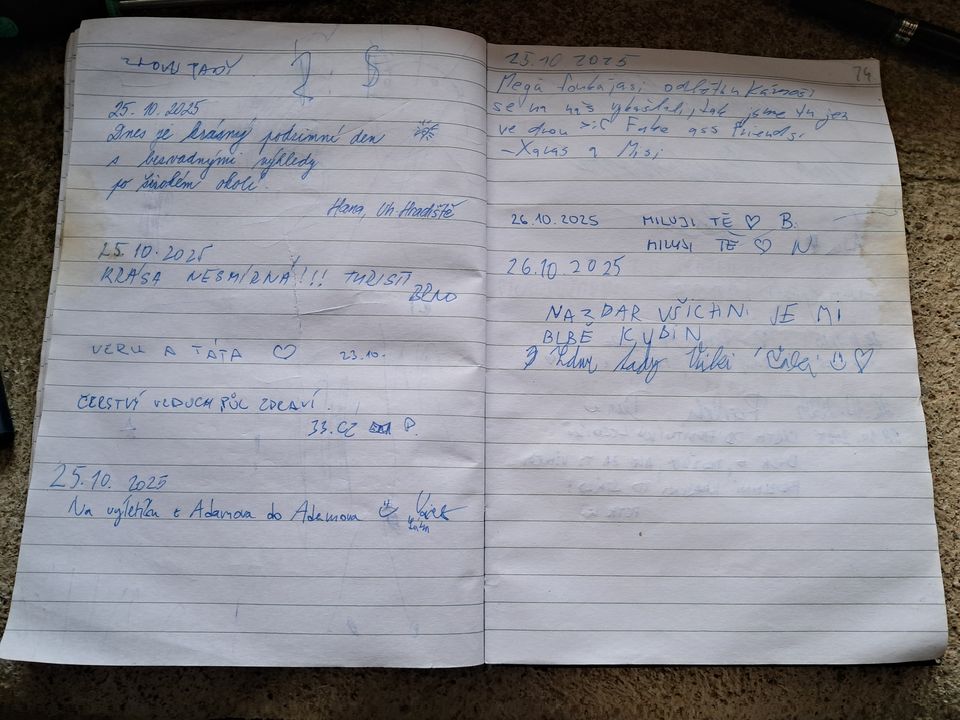 ZNOVU TADY
25. 10. 2025
Dnes je krásný podzimní den
s bezvadnými výhledy
po širokém okolí.
Hana, Uh. Hradiště
25.10.2025
KRÁSA NESMÍRNÁ!!! TURISTI
BRNO
VERU A TÁTA ♡ 23.10.
ČERSTVÝ VZDUCH PŮL ZDRAVÍ.
33.CZ P.
25.10. 2025
Na výletíku z Adamova do Adamova
74
25.10 2025
Mega fouká, jasi
se na nás vykašlali, tak jsme tu jen
ve dvou Fake ass friends!
26.10.2025 MILUJI TĚ ♡ B.
MILUJI TĚ ♡ N
26.10.2025
NAZDAR VŠICHNI JE MI
BLBĚ KYBIN